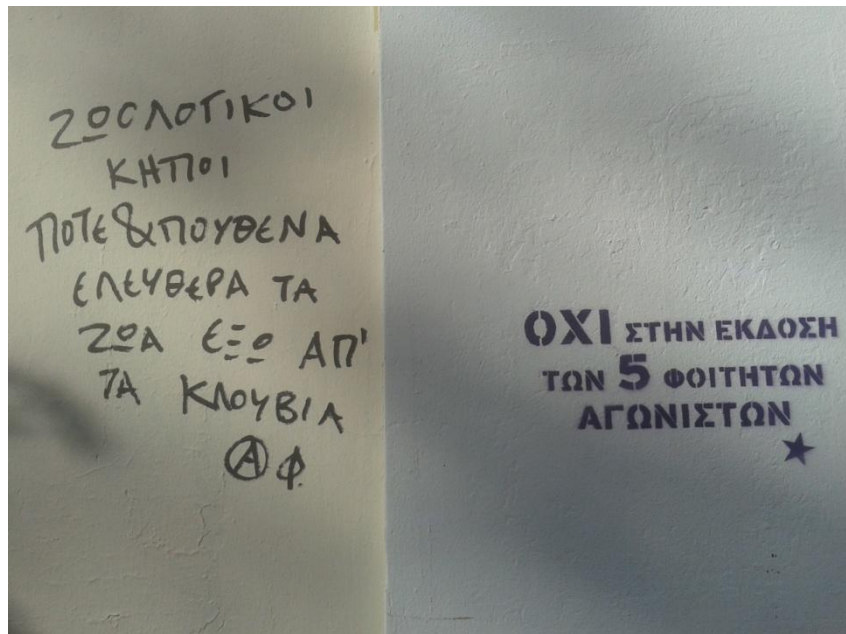 ΖΩΟΛΟΓΙΚΟΙ
ΚΗΠΟΙ
ΠΟΤΕ & ΠΟΥΘΕΝΑ
ΕΛΕΥΘΕΡΑ ΤΑ
ΖΩΑ ΕΞΩ ΑΠ'
ΤΑ ΚΛΟΥΒΙΑ
Ⓐ Φ.
ΟΧΙ ΣΤΗΝ ΕΚΔΟΣΗ
ΤΩΝ 5 ΦΟΙΤΗΤΩΝ
ΑΓΩΝΙΣΤΩΝ